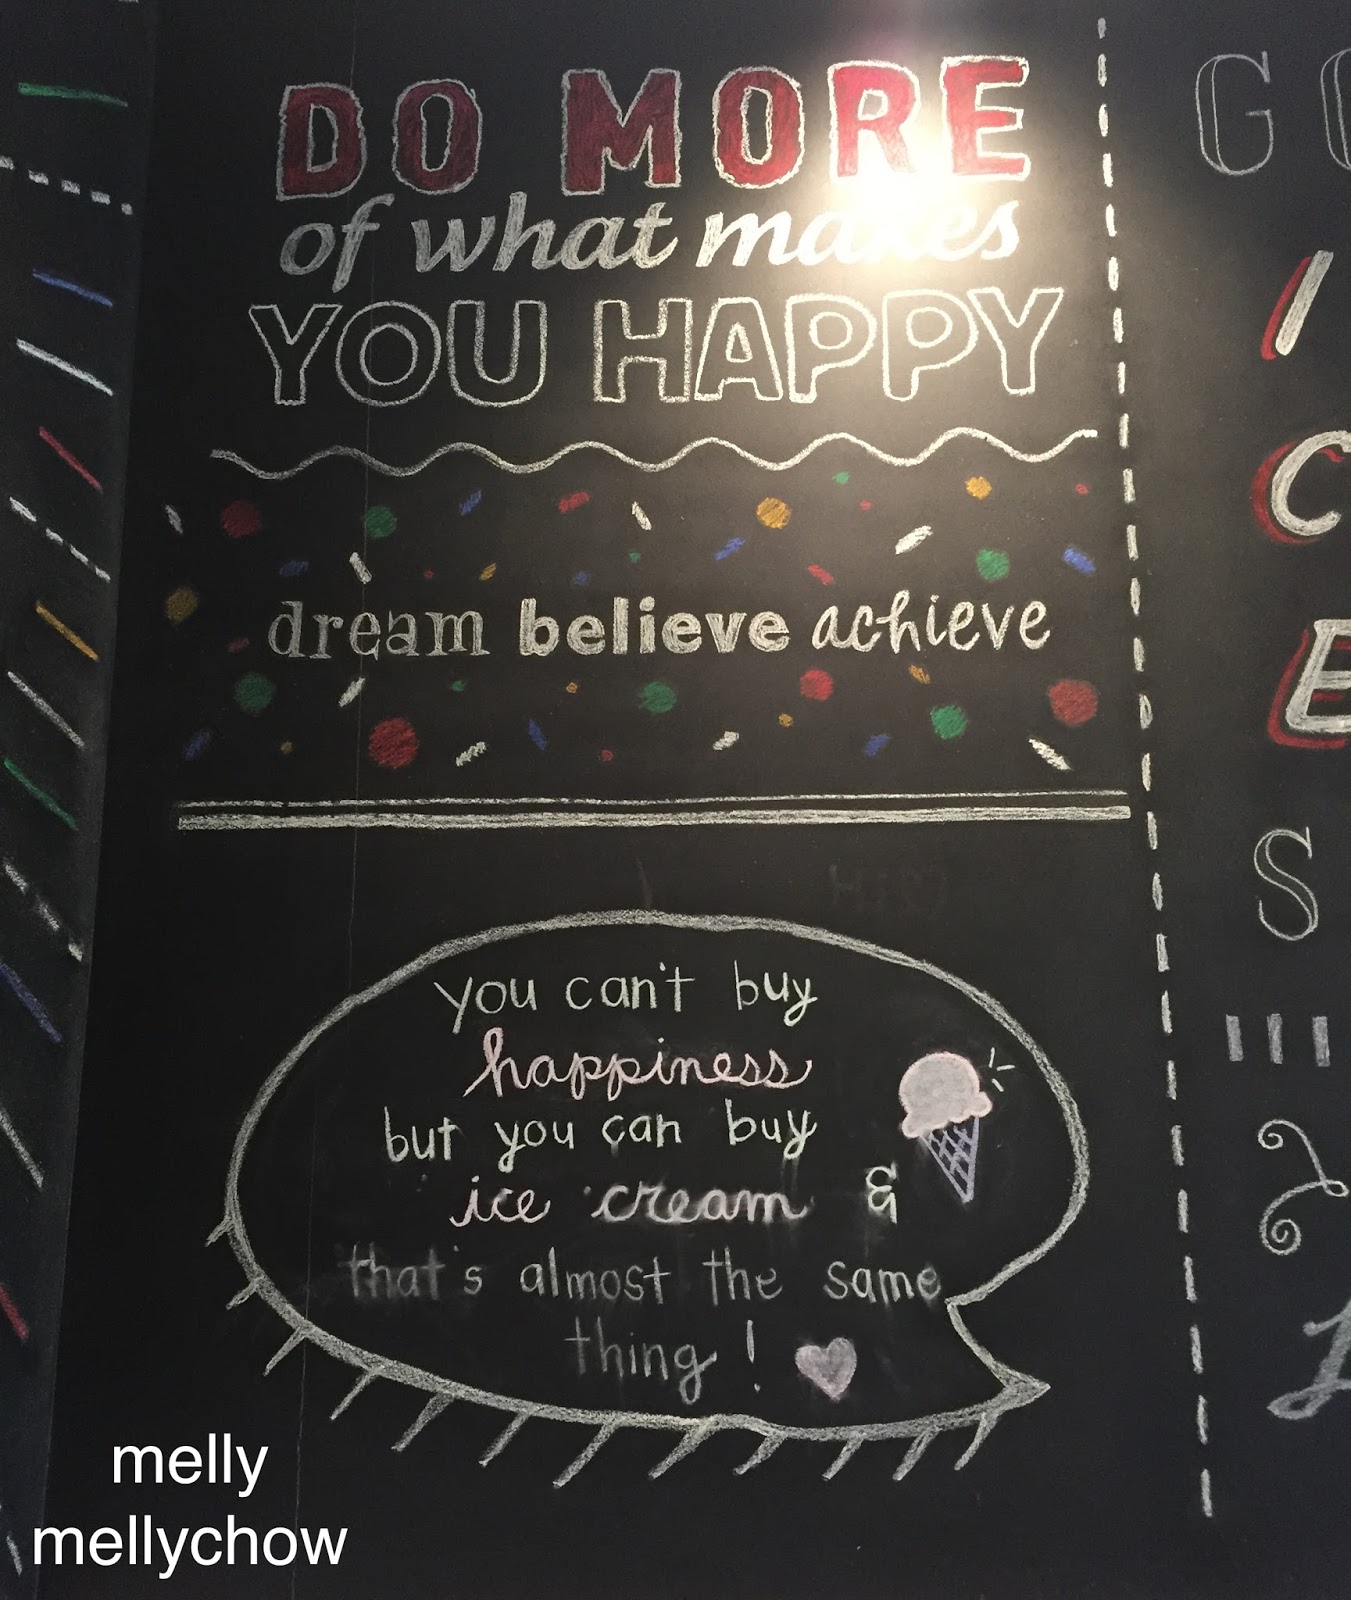 DO MORE
of what makes
YOU HAPPY
dream believe achieve
you can't buy
happiness
but you can buy
ice cream &
that's almost the same
thing!
G
I
C
E
S
melly
mellychow